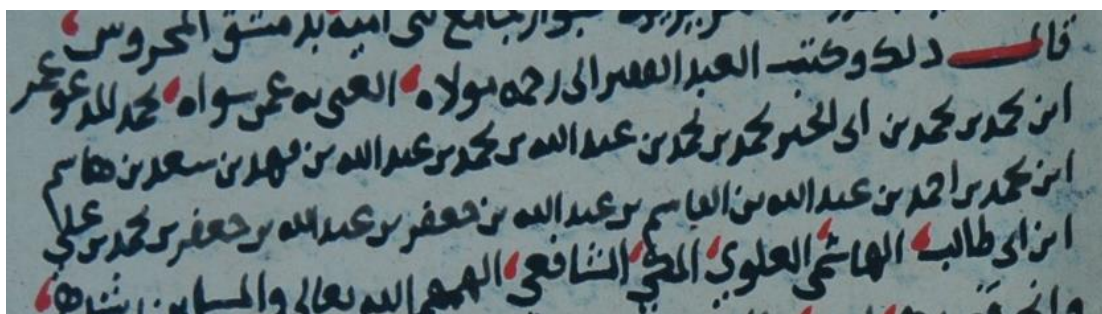 بجوار جامع بنى امية بدمشق المحروس
قال ذلك وكتب العبد الفقير الى رحمة مولاه الغنى به عمن سواه محمد المدعو عمر
ابن محمد بن محمد بن ابى الخير محمد بن محمد بن عبد الله بن محمد بن عبد الله بن فهد بن سعد بن هاشم
ابن محمد بن احمد بن عبد الله بن القاسم بن عبد الله بن جعفر بن عبد الله بن جعفر بن محمد بن على
ابن ابى طالب الهاشمى العلوى المكى الشافعى الهمهم الله تعالى والمسلمين رشدها